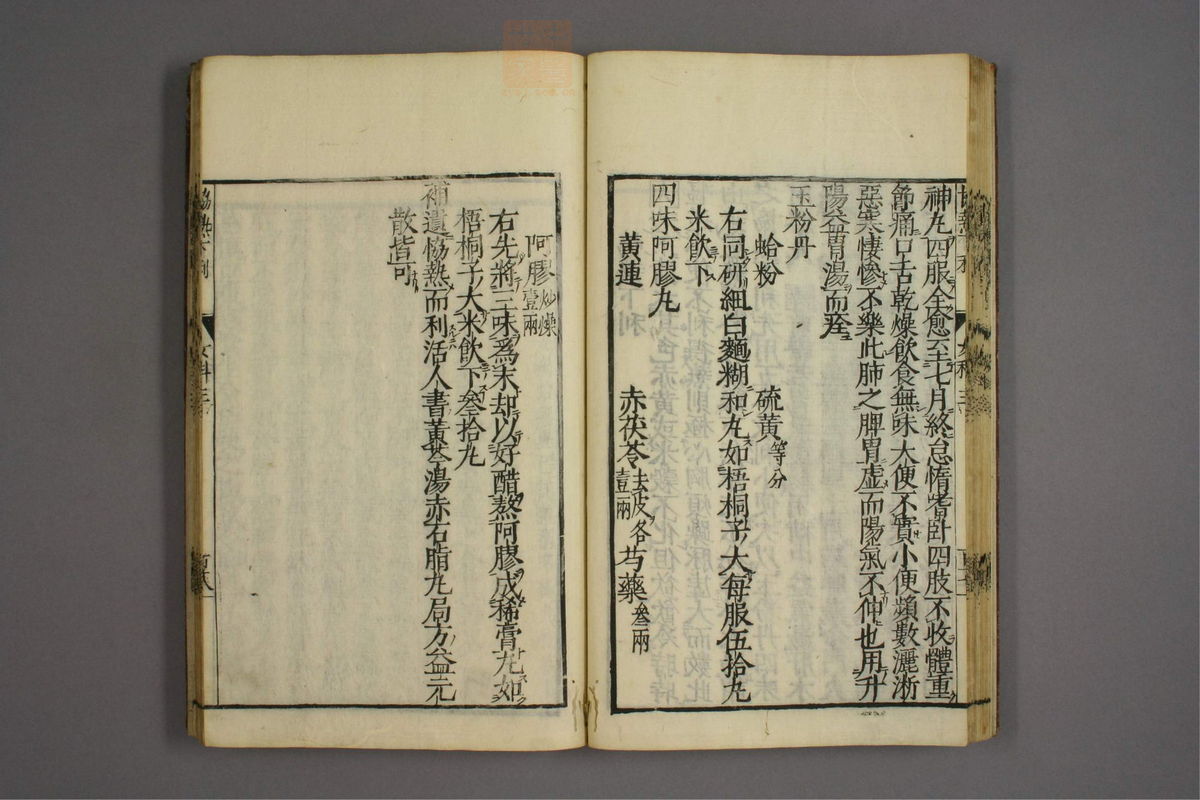 神丸四服全愈至七月終怠惰嗜卧四肢不收體重
節痛口舌乾燥飲食無味大便不實小便頻數灑淅
惡寒悽慘不樂此肺之脾胃虛而陽氣不伸也用升
陽益胃湯而痊
玉粉丹
蛤粉　硫黃等分
右同研細白麵糊和丸如梧桐子大每服伍拾丸
米飲下
四味阿膠丸
黃連　赤茯苓去皮各壹兩　芍藥叄兩
阿膠炒燥壹兩
右先將三味爲末却以好醋熬阿膠成稀膏丸如
梧桐子大米飲下叄拾丸
補遺協熱而利活人書黃芩湯赤石脂丸局方益元
散皆可
協熱下利
女科三
百八